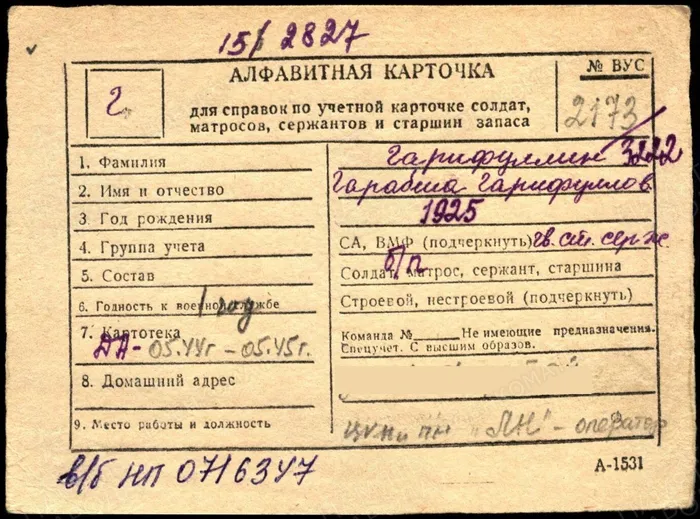 15/ 2827
АЛФАВИТНАЯ КАРТОЧКА
№ ВУС
Г.
для справок по учетной карточке солдат,
матросов, сержантов и старшин запаса
2173
3222
1. Фамилия
Гарифуллин
2. Имя и отчество
Гарабша Гарифуллов
3. Год рождения
1925
4. Группа учета
СА, ВМФ (подчеркнуть) гв. ст. серж
5. Состав
б/п
Солдат, матрос, сержант, старшина
6. Годность к военной службе
1 год
Строевой, нестроевой (подчеркнуть)
7. Картотека
ДА - 05.44г - 05.45г.
Команда № Не имеющие предназначения.
Спецучет. С высшим образов.
8. Домашний адрес
9. Место работы и должность
"ЯН" - оператор
в/б НП 0716347
А-1531